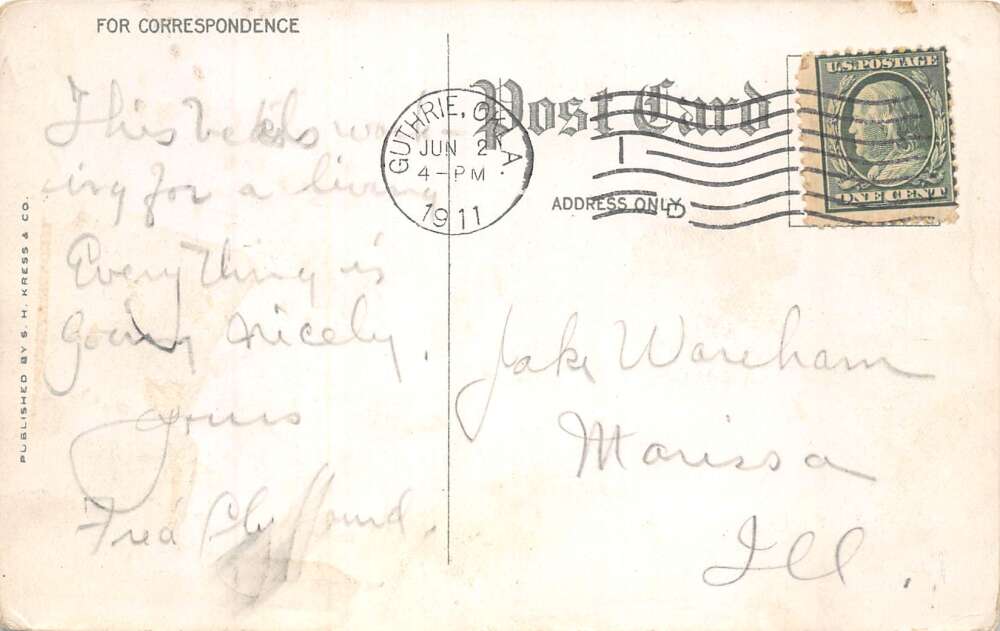 FOR CORRESPONDENCE
Post Card
U.S. POSTAGE
ONE CENT
GUTHRIE, OKLA.
JUN 2
4-PM
1911
ADDRESS ONLY
D
This work-
ing for a living
Everything is
going nicely.
Yours
Fred
Jake Wareham
Marissa
Ill.
PUBLISHED BY S. H. KRESS & CO.